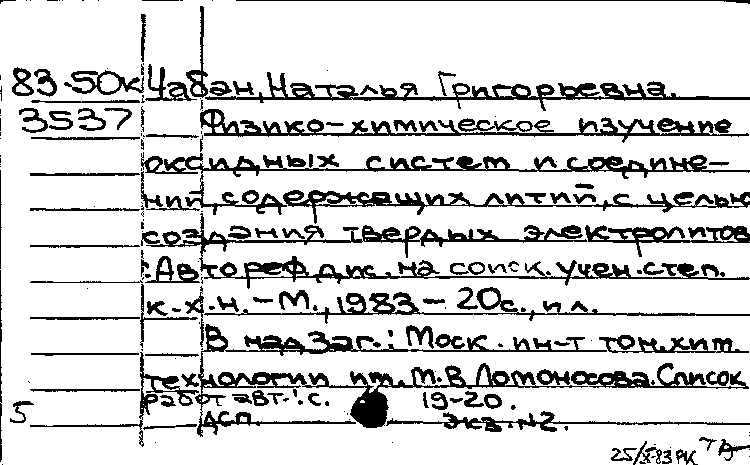 83-50к Чабан, Наталья Григорьевна.
3537 Физико-химическое изучение
оксидных систем и соедине-
ний, содержащих литий, с целью
создания твердых электролитов
: Автореф. дис. на соиск. учен. степ.
к.х.н. - М., 1983 - 20с., ил.
В надзаг.: Моск. ин-т тон. хим.
технологии им. М.В. Ломоносова. Список
работ авт.: с. 19-20.
5 ДСП. Экз. №2.